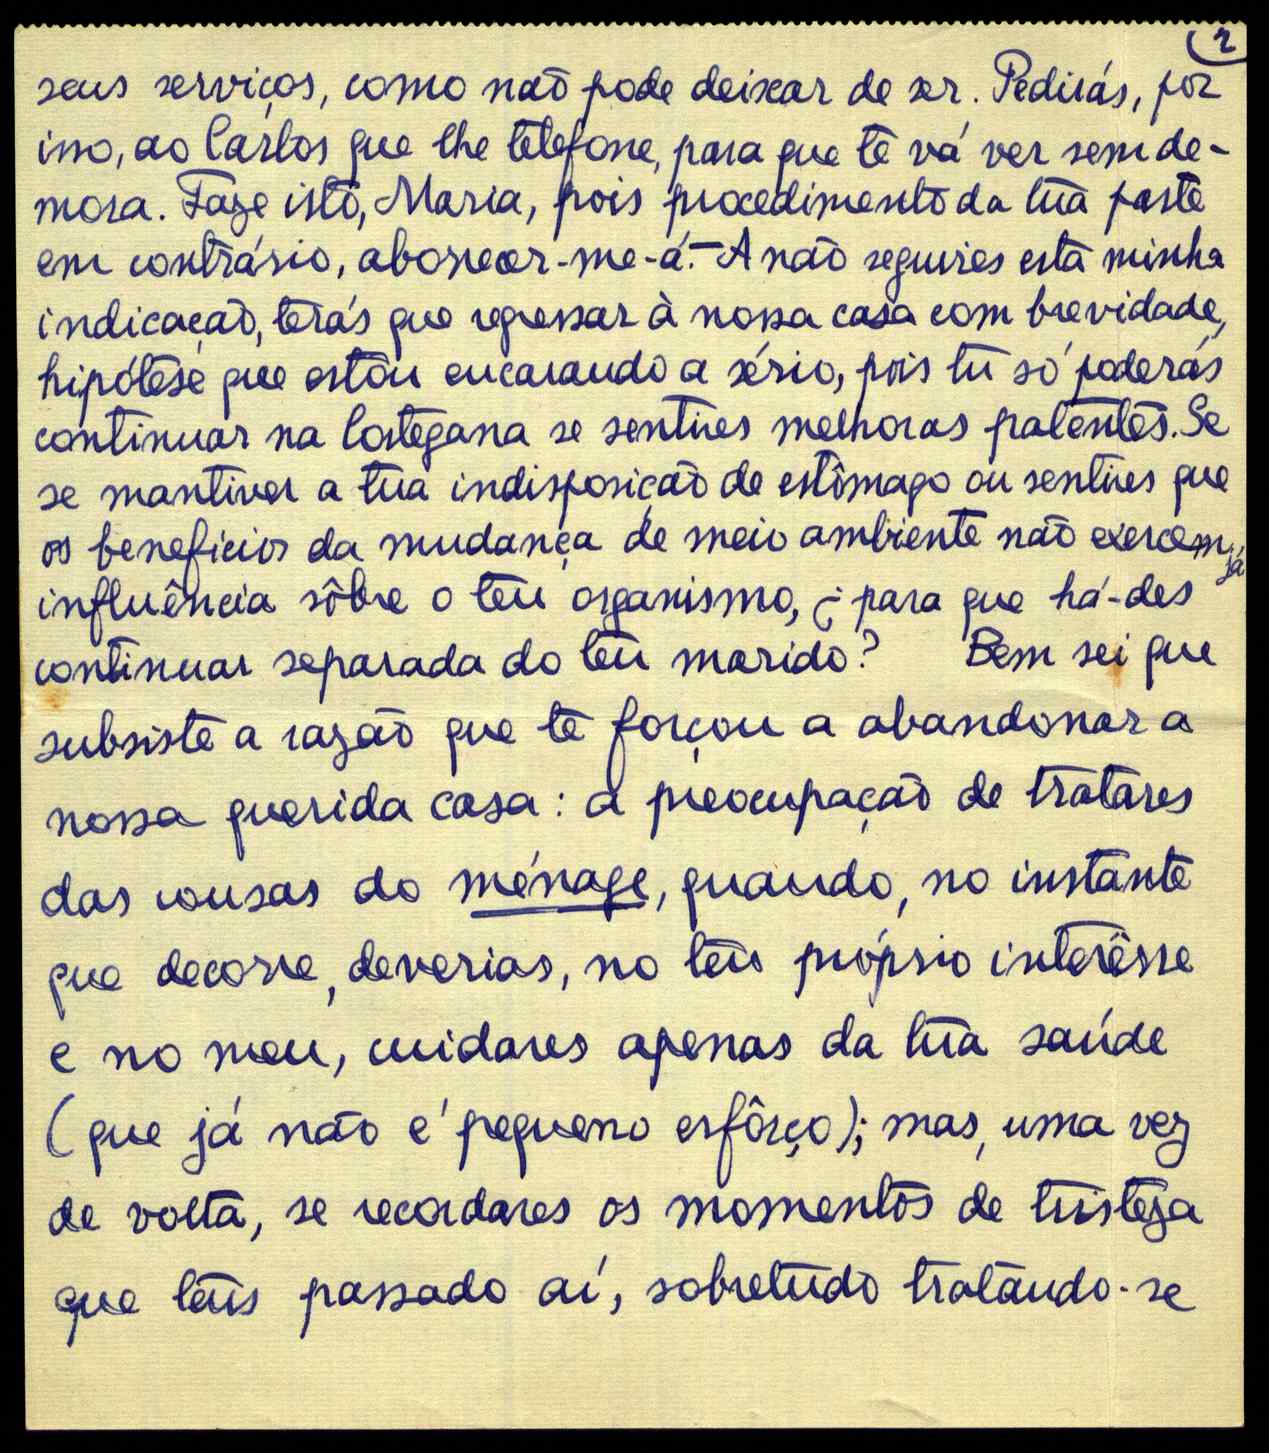 2
seus serviços, como não pode deixar de ser. Pedirás, por
isso, ao Carlos que lhe telefone, para que te vá ver sem de-
mora. Faze isto, Maria, pois procedimento da tua parte
em contrário, aborrecer-me-á. — A não seguires esta minha
indicação, terás que regressar à nossa casa com brevidade,
hipótese que estou encarando a sério, pois tu só poderás
continuar na Cortegana se sentires melhoras patentes. Se
se mantiver a tua indisposição de estômago ou sentires que
os benefícios da mudança de meio ambiente não exercem já
influência sôbre o teu organismo, ¿para que há-des
continuar separada do teu marido? Bem sei que
subsiste a razão que te forçou a abandonar a
nossa querida casa: a preocupação de tratares
das cousas do ménage, quando, no instante
que decorre, deverias, no teu próprio interêsse
e no meu, cuidares apenas da tua saúde
(que já não é pequeno esfôrço); mas, uma vez
de volta, se recordares os momentos de tristeza
que tens passado aí, sobretudo tratando-se